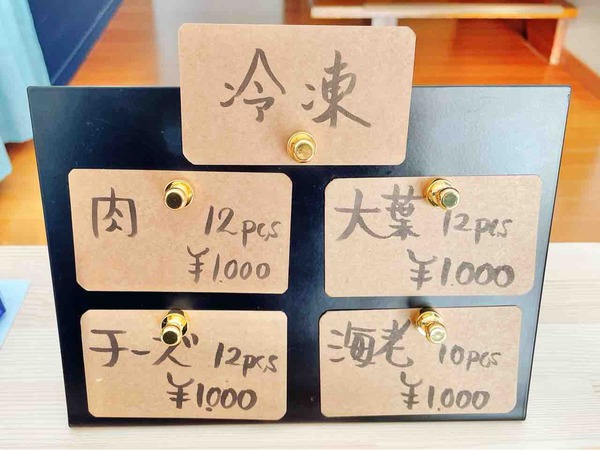 冷凍
肉 12pcs
¥1,000
大葉 12pcs
¥1,000
チーズ 12pcs
¥1,000
海老 10pcs
¥1,000